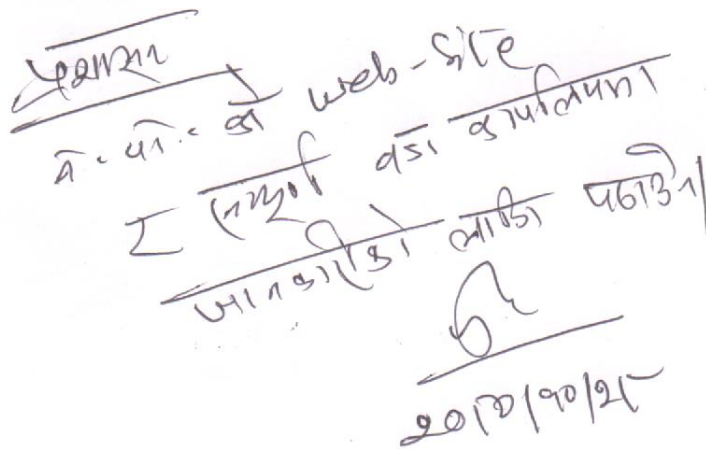 प्रशासन
न. पा. को web-site
र सम्पूर्ण वडा कार्यालयमा
जानकारीको लागि पठाउने।